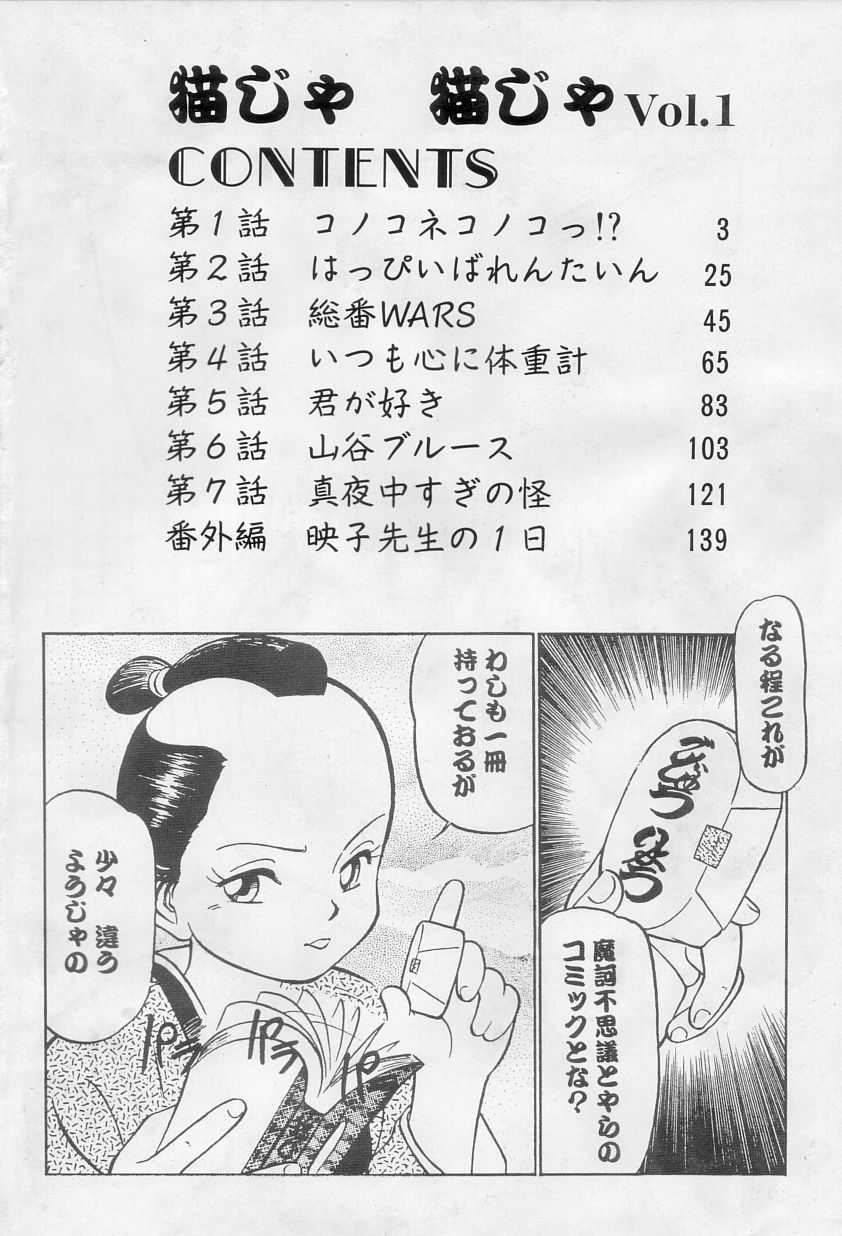 猫じゃ 猫じゃ Vol.1
CONTENTS
第1話 コノコネコノコっ!? 3
第2話 はっぴいばれんたいん 25
第3話 総番WARS 45
第4話 いつも心に体重計 65
第5話 君が好き 83
第6話 山谷ブルース 103
第7話 真夜中すぎの怪 121
番外編 映子先生の1日 139
なる程これが
魔訶不思議とやらの
コミックとな?
わしも一冊
持っておるが
少々 違う
ようじゃの
パラ
パラ
パ